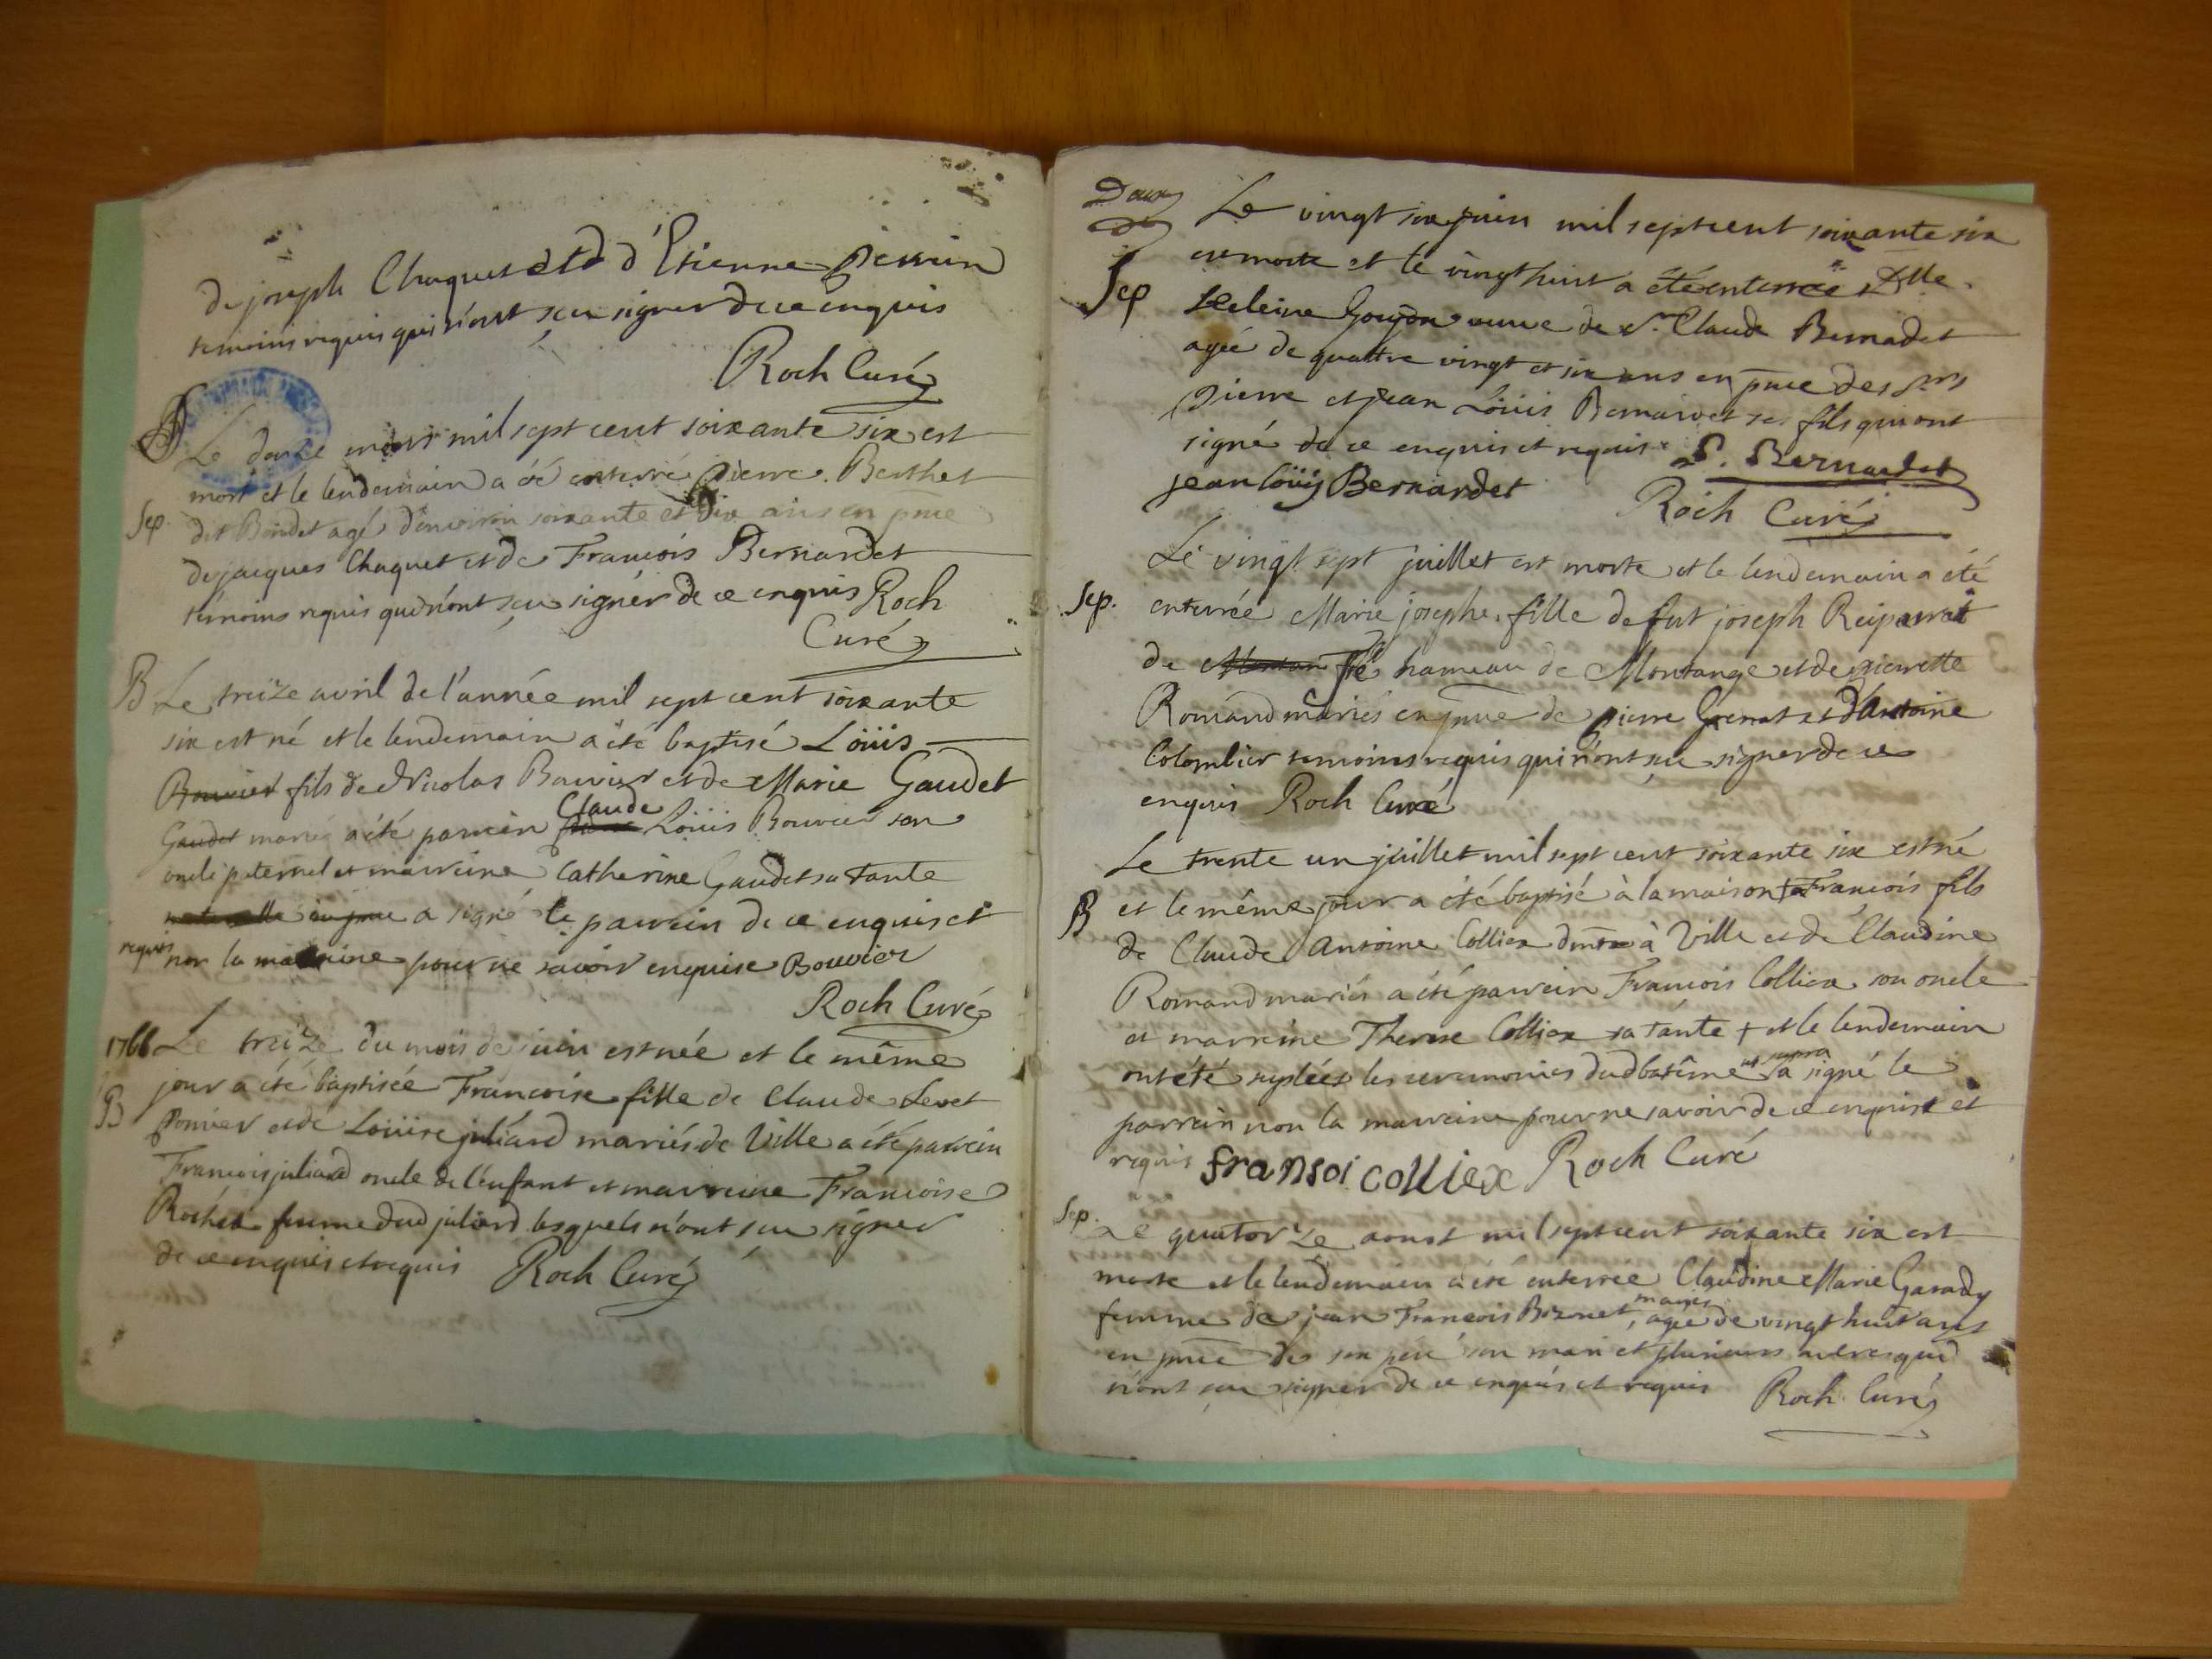 de joseph Chaquet et d'Etienne Perrin
temoins requis qui n'ont sçu signer de ce enquis
Roch Curé
Le douze mil sept cent soixante six est
mort et le lendemain a été enterré Pierre Berthet
Sep. dit Bondet agé d'environ soixante et dix ans en pnce
de jacques Chaquet et de François Bernardet
témoins requis qui n'ont sçu signer de ce enquis Roch
Curé
B Le treize avril de l'année mil sept cent soixante
six est né et le lendemain a été baptisé Loüis
Bouvier fils de Nicolas Bouvier et de Marie Gaudet
Gaudet mariés a été parrein Claude Loüis Bouvier son
oncle paternel et marreine Catherine Gaudet sa tante
maternelle en pnce a signé le parrein de ce enquis et
requis non la marreine pour ne savoir enquise Bouvier
Roch Curé
1766 Le treize du mois de juin est née et le même
jour a été baptisée Francoise fille de Claude Levet
B et de Loüise juliard mariés de Ville a été parrein
Francois juliard oncle de l'enfant et marreine Francoise
Rochet femme dud juliard lesquels n'ont sçu signer
de ce enquis et requis Roch Curé
Le vingt six juin mil sept cent soixante six
est morte et le vingt huit a été enterrée Dlle
Sep Heleine Goujon veuve de Sr Claude Bernadet
agée de quattre vingt et six ans en pnce des Srs
Pierre et Jean Loüis Bernardet ses fils qui ont
signé de ce enquis et requis P. Bernardet
jean loüis Bernardet Roch Curé
Le vingt sept juillet est morte et le lendemain a été
Sep. enterrée Marie josephe fille de fut joseph
de hameau de Montange et de pierrette
Romand mariés en pnce de pierre Grenat et d'Antoine
Colombier temoins requis qui n'ont sçu signer de ce
enquis Roch Curé
Le trente un juillet mil sept cent soixante six est né
B et le même jour a été baptisé à la maison François fils
de Claude Antoine Colliex à Ville et de Claudine
Romand mariés a été parrein Francois Colliex son oncle
et marreine Therese Colliex sa tante + et le lendemain
ont été suplées les ceremonies dud batême ut supra a signé le
parrein non la marreine pour ne savoir de ce enquise et
requis fransoi colliex Roch Curé
Sep. Le quatorze aoust mil sept cent soixante six est
morte et le lendemain a été enterrée Claudine Marie Gavady
femme de jean François Biznet, mariés agée de vingt huit ans
en pnce de son peré son mari et plusieurs autres qui
n'ont sçu signer de ce enquis et requis Roch Curé